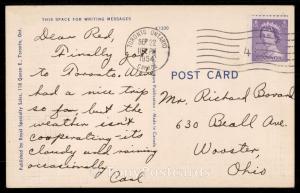 THIS SPACE FOR WRITING MESSAGES
Dear Red,
Finally got
to Toronto. We've
had a nice trip
so far, but the
weather isn't
cooperating - its
cloudy and raining
occasionally.
Carl
Published by Royal Specialty Sales, 118 Queen E., Toronto, Ont.
TORONTO ONTARIO
SEP 22
1954
POST CARD
Mr. Richard Bovard
630 Beall Ave.
Wooster,
Ohio